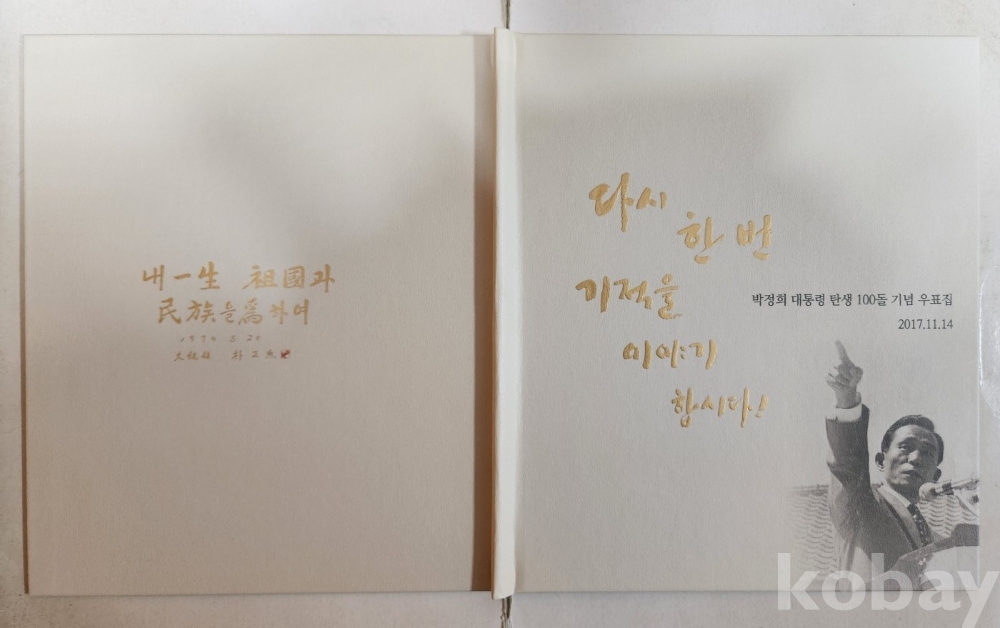 내 一生 祖國과
民族을 爲하여
1974. 5. 20
大統領 朴正熙
다시
한 번
기적을
이야기
합시다!
박정희 대통령 탄생 100돌 기념 우표집
2017.11.14
kobay